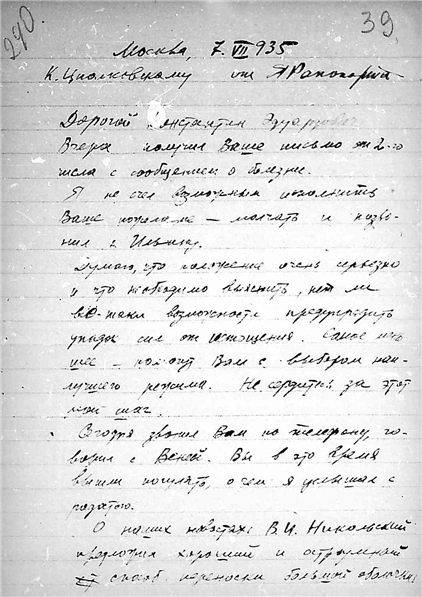 290.
39.
Москва, 7.VII 935
К. Циолковскому от Я Рапопорта
Дорогой Константин Эдуардович
Вчера получил Ваше письмо от 2-го
числа с сообщением о болезни.
Я не счел возможным исполнить
Ваше желание – молчать и позво-
нил к Ильину.
Думаю, что положение очень серьезно
и что необходимо выяснить, нет ли
все-таки возможности предупредить
упадок сил от истощения. Самое
шее – помогут Вам с выбором наи-
лучшего режима. Не сердитесь за этот
мой шаг.
Сегодня звонил Вам по телефону, го-
ворил с Веней. Вы в это время
вышли погулять, о чем я услышал с
радостью.
О наших новостях: В.И. Никольский
предложил хороший и остроумный
способ переноски большой оболочки